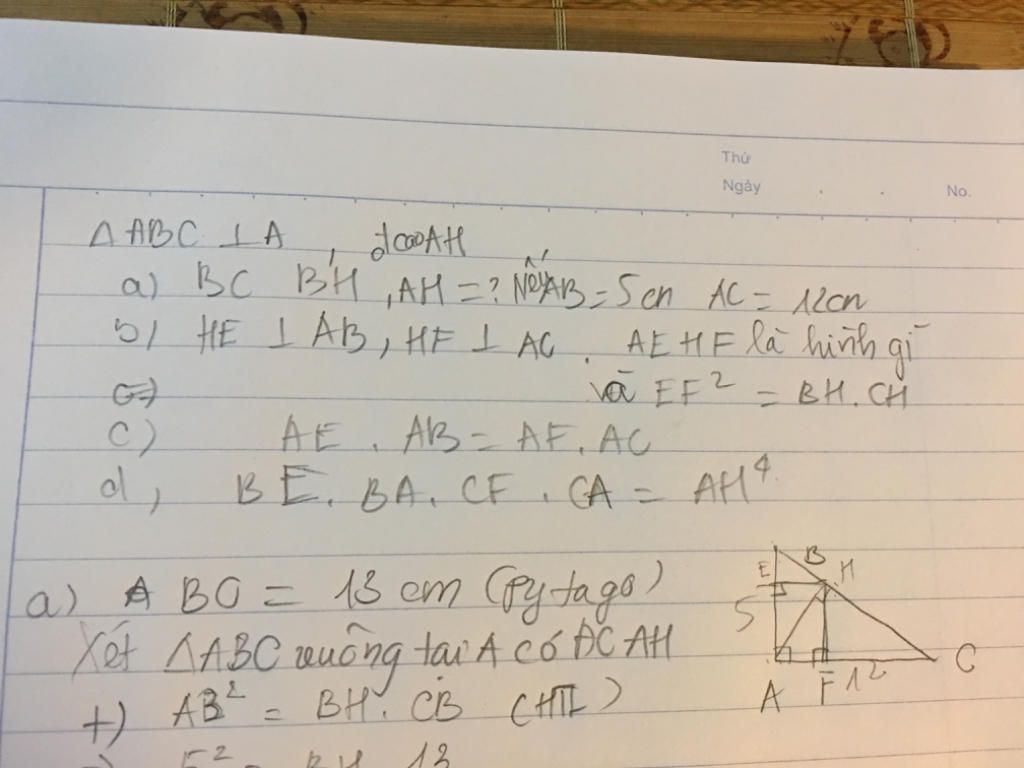 Thứ
Ngày . . No.
Δ ABC ⊥ A , đcao AH
a) BC BH , AH = ? Nếu AB = 5 cm AC = 12 cm
b) HE ⊥ AB, HF ⊥ AC . AEHF là hình gì
và EF² = BH. CH
c) AE . AB = AF. AC
d, BE. BA. CF . CA = AH⁴
a) BC = 13 cm (Pytago)
Xét ΔABC vuông tại A có ĐC AH
+) AB² = BH. CB (HTL)
5² = BH 13
B
E H
5
A F 12 C